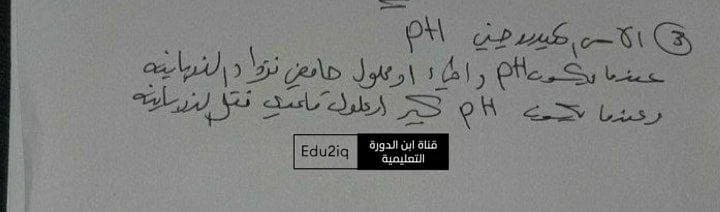 ③ الاس الهيدروجيني pH
عندما يكون pH واطيء او محلول حامضي تزداد الذوبانية
وعندما يكون pH كبير او محلول قاعدي تقل الذوبانية
Edu2iq
قناة ابن الدورة
التعليمية